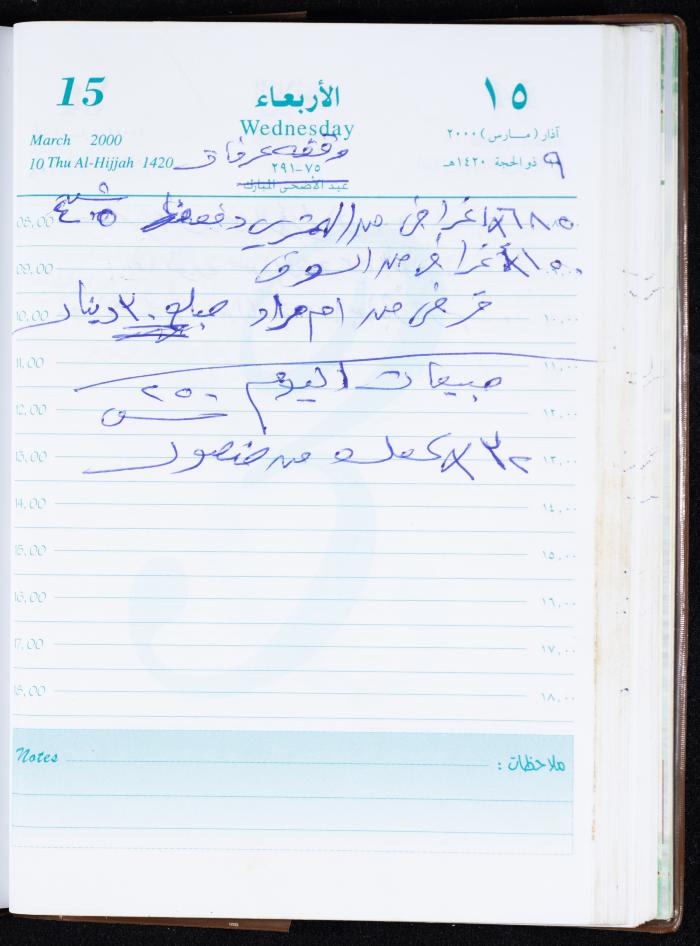 15
الأربعاء
١٥
Wednesday
March 2000
آذار (مارس) ٢٠٠٠
وقفه عرفات
10 Thu Al-Hijjah 1420
٩ ذو الحجة ١٤٢٠هـ
٧٥-٢٩١
عيد الأضحى المبارك
08,00
٦٨٥ اغراض من
دفعه
٤٠٥ شيكل
09,00
١٥٠ اغراض من السوق
10,00
١٠,٠٠
من ام مراد مبلغ ٣٠ دينار
11,00
١١,٠٠
مبيعات اليوم ٢٥٠ ش
12,00
١٢,٠٠
٣٢ كعك من منصور
13,00
١٣,٠٠
14,00
١٤,٠٠
15,00
١٥,٠٠
16,00
١٦,٠٠
17,00
١٧,٠٠
18,00
١٨,٠٠
Notes
ملاحظات :